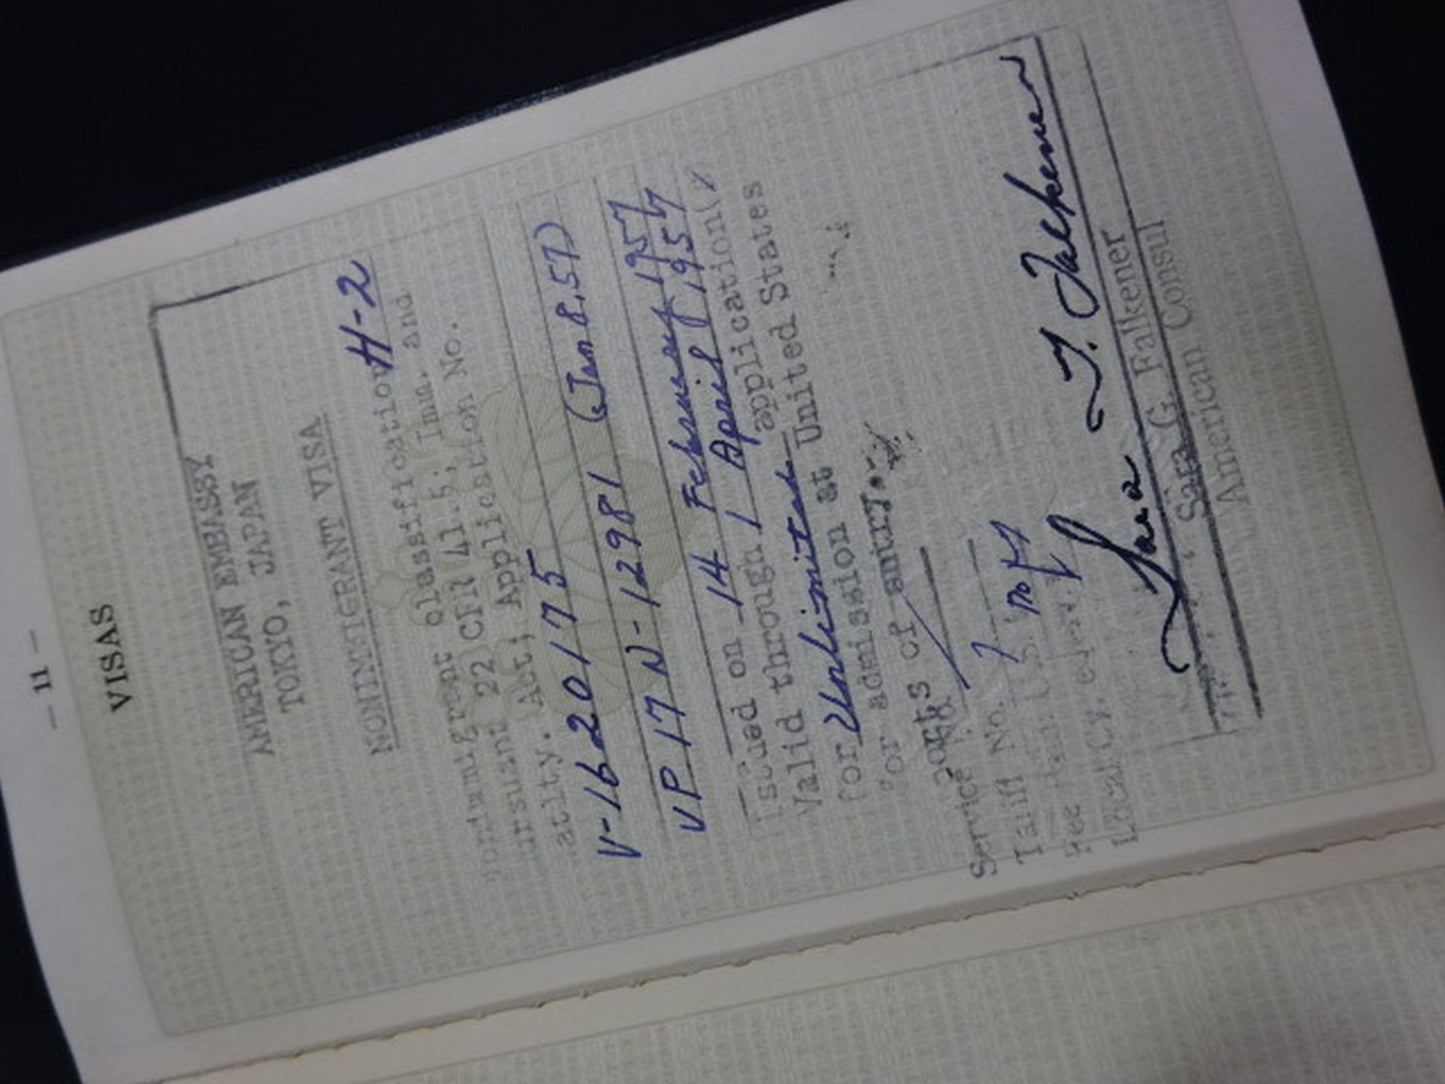 — 11 —
VISAS
AMERICAN EMBASSY
TOKYO, JAPAN
NONIMMIGRANT VISA
classification H-2
22 CFR 41.5; Imm. and
Act; Application No.
V-1620175 (Jan 8.57)
VP 17 N-12981
Issued on 14 February 1957
Valid through 1 April 1957
for Unlimited application(
for admission at United States
ports of entry.
Service No.
Tariff No. 7
Fee
Local Cy.
Sara G. Falkener
Sara G. Falkener
American Consul